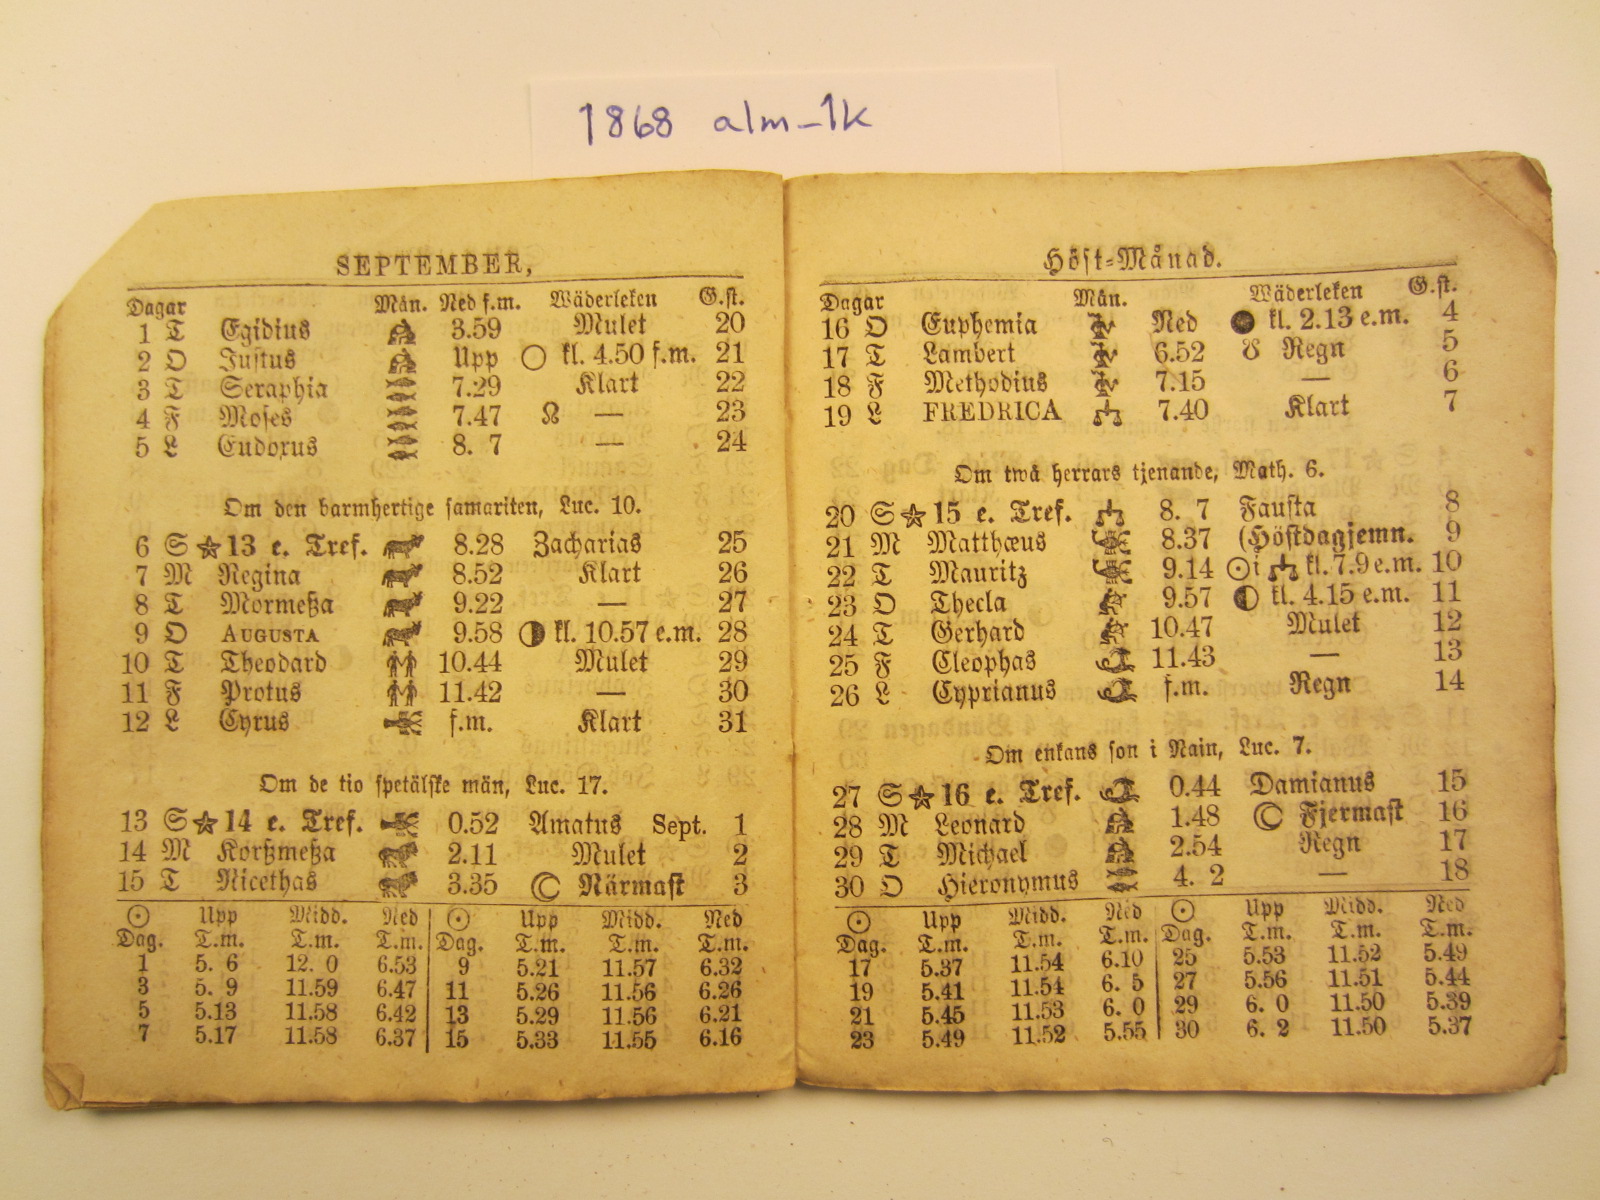 1868 alm-1k
SEPTEMBER,
Dagar Mån. Ned f.m. Wäderleken G.st.
1 T Egidius 3.59 Mulet 20
2 O Justus Upp ○ kl. 4.50 f.m. 21
3 T Seraphia 7.29 Klart 22
4 F Moses 7.47 ☊ — 23
5 L Eudoxus 8. 7 — 24
Om den barmhertige samariten, Luc. 10.
6 S ★ 13 e. Tref. 8.28 Zacharias 25
7 M Regina 8.52 Klart 26
8 T Mormeßa 9.22 — 27
9 O AUGUSTA 9.58 ◑ kl. 10.57 e.m. 28
10 T Theodard 10.44 Mulet 29
11 F Protus 11.42 — 30
12 L Cyrus f.m. Klart 31
Om de tio spetälske män, Luc. 17.
13 S ★ 14 e. Tref. 0.52 Amatus Sept. 1
14 M Korßmeßa 2.11 Mulet 2
15 T Nicethas 3.35 ☾ Närmast 3
☉ Upp Midd. Ned ☉ Upp Midd. Ned
Dag. T.m. T.m. T.m. Dag. T.m. T.m. T.m.
1 5. 6 12. 0 6.53 9 5.21 11.57 6.32
3 5. 9 11.59 6.47 11 5.26 11.56 6.26
5 5.13 11.58 6.42 13 5.29 11.56 6.21
7 5.17 11.58 6.37 15 5.33 11.55 6.16
Höst-Månad.
Dagar Mån. Wäderleken G.st.
16 O Euphemia Ned ● kl. 2.13 e.m. 4
17 T Lambert 6.52 ☋ Regn 5
18 F Methodius 7.15 — 6
19 L FREDRICA 7.40 Klart 7
Om twå herrars tjenande, Math. 6.
20 S ★ 15 e. Tref. 8. 7 Fausta 8
21 M Matthæus 8.37 (Höstdagjemn. 9
22 T Mauritz 9.14 ☉ i ♎ kl. 7.9 e.m. 10
23 O Thecla 9.57 ◐ kl. 4.15 e.m. 11
24 T Gerhard 10.47 Mulet 12
25 F Cleophas 11.43 — 13
26 L Cyprianus f.m. Regn 14
Om enkans son i Nain, Luc. 7.
27 S ★ 16 e. Tref. 0.44 Damianus 15
28 M Leonard 1.48 ☾ Fjermast 16
29 T Michael 2.54 Regn 17
30 O Hieronymus 4. 2 — 18
☉ Upp Midd. Ned ☉ Upp Midd. Ned
Dag. T.m. T.m. T.m. Dag. T.m. T.m. T.m.
17 5.37 11.54 6.10 25 5.53 11.52 5.49
19 5.41 11.54 6. 5 27 5.56 11.51 5.44
21 5.45 11.53 6. 0 29 6. 0 11.50 5.39
23 5.49 11.52 5.55 30 6. 2 11.50 5.37